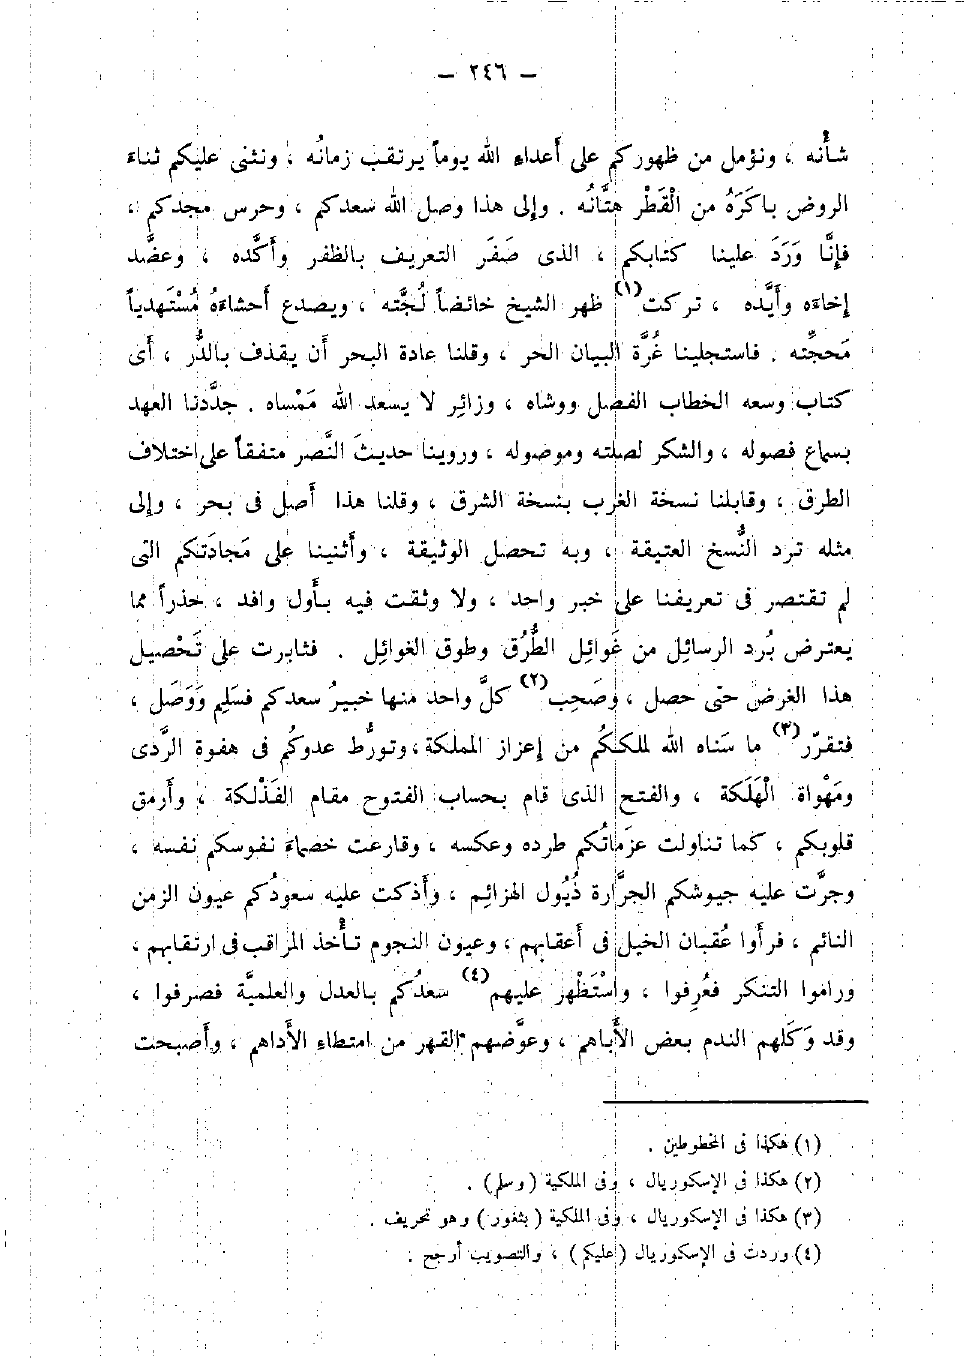 — ٢٤٦ —
شأنه ، ونؤمل من ظهوركم على أعداء الله يوماً يرتقب زمانُه ، ونثنى عليكم ثناء
الروض باكَرَهُ من الْقَطْر هتَّانُه . وإلى هذا وصل الله سعدكم ، وحرس مجدكم ،
فإنَّا وَرَدَ علينا كتابكم ، الذى صَفَر التعريف بالظفر وأكَّده ، وعضَّد
إخاءه وأيَّده ، تركت(١) ظهر الشيخ خائضاً لُجَّته ، ويصدع أحشاءهُ مُسْتَهدياً
مَحجَّته . فاستجلينا غُرَّة البيان الحر ، وقلنا عادة البحر أن يقذف بالدُّر ، أى
كتاب وسعه الخطاب الفصل ووشاه ، وزائر لا يسعد الله مَمْساه . جدَّدنا العهد
بسماع فصوله ، والشكر لصلته وموصوله ، وروينا حديثَ النَّصر متفقاً على اختلاف
الطرق ، وقابلنا نسخة الغرب بنسخة الشرق ، وقلنا هذا أصل فى بحر ، وإلى
مثله ترد النُّسخ العتيقة ، وبه تحصل الوثيقة ، وأثنينا على مَجادَتكم التى
لم تقتصر فى تعريفنا على خبر واحد ، ولا وثقت فيه بأول وافد ، حذراً مما
يعترض بُرد الرسائل من غَوائل الطُّرُق وطوق الغوائل . فثابرت على تَحْصيل
هذا الغرض حتى حصل ، وصَحِب(٢) كلَّ واحد منها خبيرُ سعدكم فسَلِم وَوَصَل ،
فتقرّر(٣) ما سَناه الله للملككُم من إعزاز المملكة ، وتورُّط عدوكُم فى هفوة الرَّدى
ومَهْواة الْهَلَكة ، والفتح الذى قام بحساب الفتوح مقام الفَذْلكة ، وأرمق
قلوبكم ، كما تناولت عزَماتُكم طرده وعكسه ، وقارعت خصماء نفوسكم نفسه ،
وجرَّت عليه جيوشكم الجرَّارة ذُيُول الهزائم ، وأذكت عليه سعودُكم عيون الزمن
النائم ، فرأوا عُقبان الخيل فى أعقابهم ، وعيون النجوم تأخذ المراقب فى ارتقابهم ،
وراموا التنكر فعُرِفوا ، واسْتَظْهر عليهم(٤) سعدُكم بالعدل والعلميَّة فصرفوا ،
وقد وَكَلهم الندم بعض الأباهم ، وعوَّضهم القهر من امتطاء الأداهم ، وأصبحت
(١) هكذا فى المخطوطين .
(٢) هكذا فى الإسكوريال ، وفى الملكية (وسلم) .
(٣) هكذا فى الإسكوريال ، وفى الملكية (بثغور) وهو تحريف .
(٤) وردت فى الإسكوريال (عليكم) ، والتصويب أرجح .